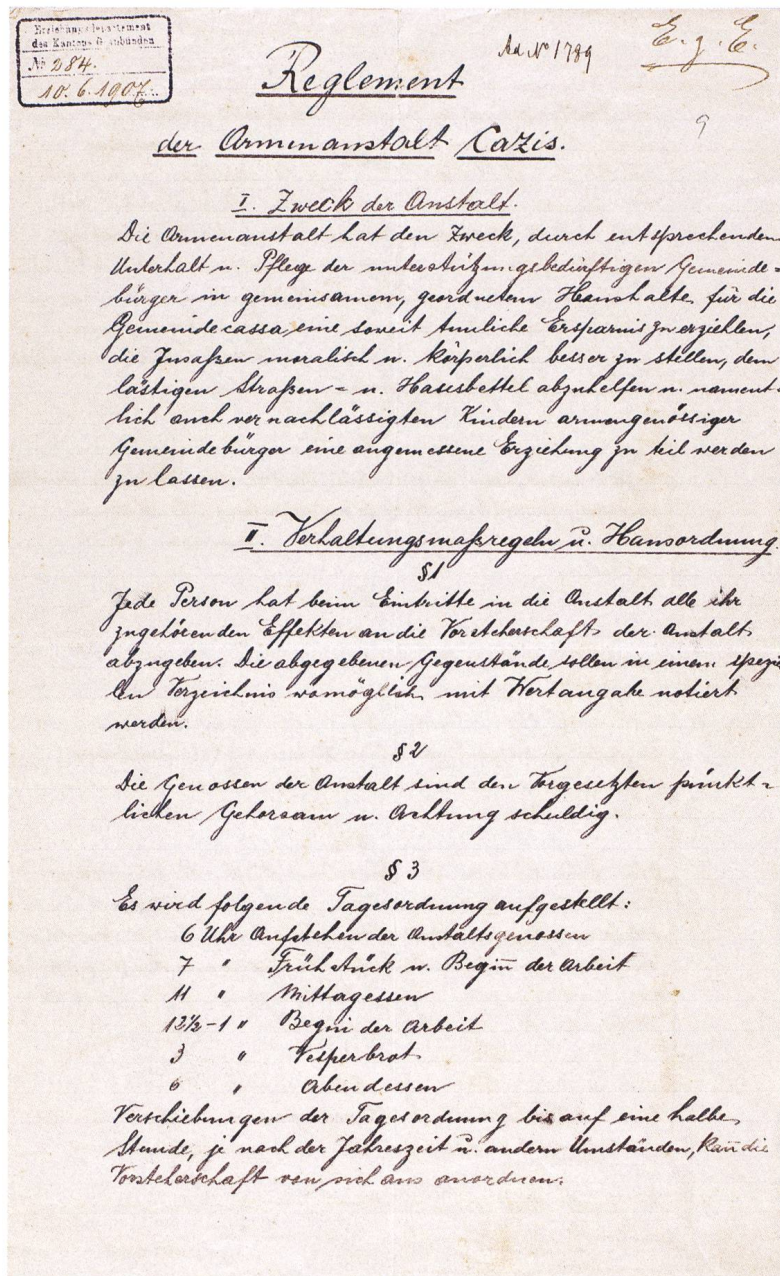 Erziehungsdepartement
des Kantons Graubünden
No 284.
10. 6. 1907.
Ad. No 1789
E. z. E.
9
Reglement
der Armenanstalt Cazis.
I. Zweck der Anstalt.
Die Armenanstalt hat den Zweck, durch entsprechenden
Unterhalt u. Pflege der unterstützungsbedürftigen Gemeinde=
bürger in gemeinsamem, geordnetem Haushalte für die
Gemeindecassa eine soweit tunliche Ersparnis zu erziehlen,
die Insaßen moralisch u. körperlich besser zu stellen, dem
lästigen Straßen= u. Hausbettel abzuhelfen u. nament=
lich auch vernachlässigten Kindern armengenössiger
Gemeindebürger eine angemessene Erziehung zu teil werden
zu lassen.
II. Verhaltungsmaßregeln u. Hausordnung.
§1
Jede Person hat beim Eintritte in die Anstalt alle ihr
zugehörenden Effekten an die Vorsteherschaft der Anstalt
abzugeben. Die abgegebenen Gegenstände sollen in einem spezie
len Verzeichnis womöglich mit Wertangabe notiert
werden.
§2
Die Genossen der Anstalt sind den Vorgesetzten pünkt=
lichen Gehorsam u. Achtung schuldig.
§ 3
Es wird folgende Tagesordnung aufgestellt:
6 Uhr Aufstehen der Anstaltsgenossen
7 " Frühstück u. Begin̅ der Arbeit
11 " Mittagessen
12½-1 " Begin der Arbeit
3 " Vesperbrot
6 " Abendessen
Verschiebungen der Tagesordnung bis auf eine halbe
Stunde, je nach der Jahreszeit u. andern Umständen, kan̅ die
Vorsteherschaft von sich aus anordnen.